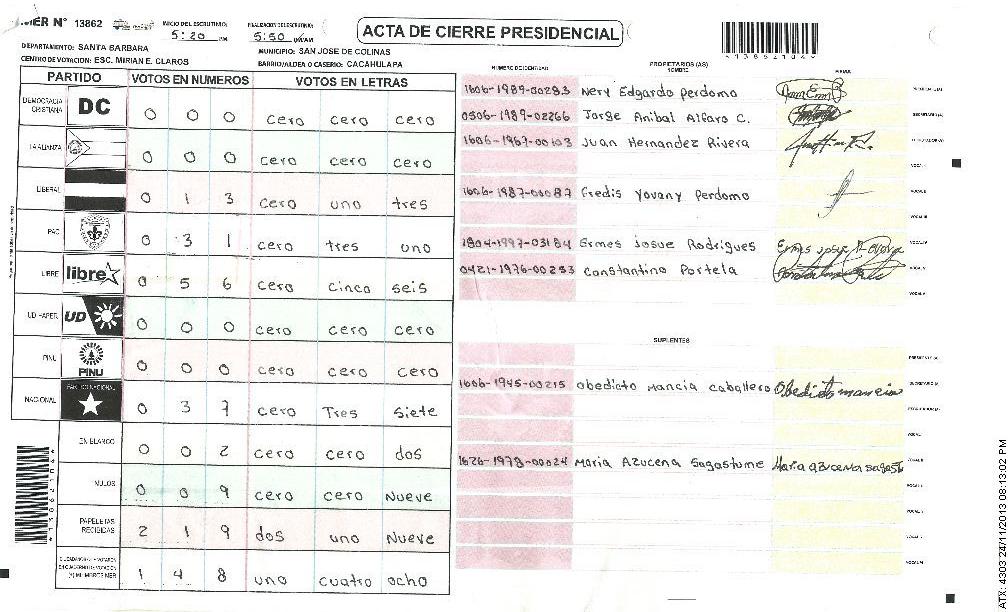 MER N° 13862
INICIO DEL ESCRUTINIO:
5:20 PM
FINALIZACION DEL ESCRUTINIO:
5:50
ACTA DE CIERRE PRESIDENCIAL
*1386210 4*
DEPARTAMENTO: SANTA BARBARA
MUNICIPIO: SAN JOSE DE COLINAS
CENTRO DE VOTACION: ESC. MIRIAN E. CLAROS
BARRIO/ALDEA O CASERIO: CACAHULAPA
PARTIDO VOTOS EN NUMEROS VOTOS EN LETRAS
DEMOCRACIA CRISTIANA DC 0 0 0 cero cero cero
LA ALIANZA 0 0 0 cero cero cero
LIBERAL 0 1 3 cero uno tres
PAC 0 3 1 cero tres uno
LIBRE libre 0 5 6 cero cinco seis
UD FAPER UD 0 0 0 cero cero cero
PINU PINU 0 0 0 cero cero cero
NACIONAL PARTIDO NACIONAL 0 3 7 cero Tres Siete
EN BLANCO 0 0 2 cero cero dos
NULOS 0 0 9 cero cero Nueve
PAPELETAS RECIBIDAS 2 1 9 dos uno Nueve
1 4 8 uno cuatro ocho
NUMERO DE IDENTIDAD PROPIETARIOS (AS) NOMBRE FIRMA
1606-1989-00283 Nery Edgardo Perdomo PRESIDENTE (A)
0506-1989-02266 Jorge Anibal Alfaro C. SECRETARIO (A)
1606-1967-00103 Juan Hernandez Rivera
VOCAL I
1606-1987-00087 Fredis Yovany Perdomo VOCAL II
VOCAL III
1804-1997-03184 Ermes Josue Rodrigues VOCAL IV
0421-1976-00253 Constantino Portela VOCAL V
SUPLENTES
PRESIDENTE (A)
1606-1945-00215 obedicto mancia caballero Obedicto mancia SECRETARIO (A)
1626-1978-00024 Maria Azucena Sagastume Maria azucena sagast
ATX: 4303 24/11/2013 08:13:02 PM